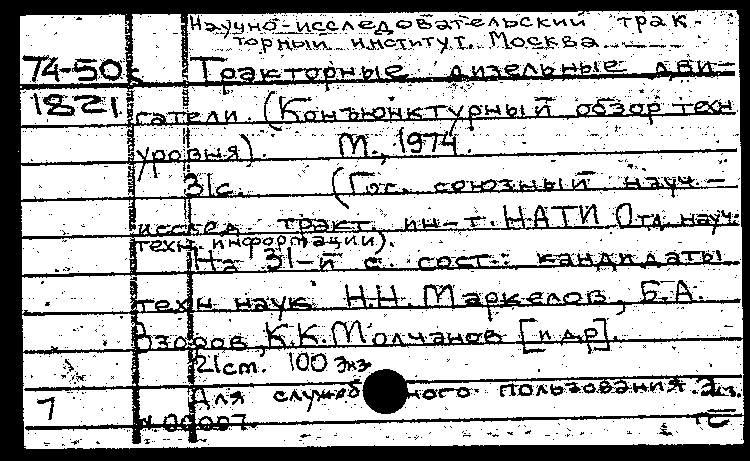 Научно-исследовательский трак-
торный институт. Москва
74-50с Тракторные дизельные дви-
1821 гатели. (Конъюнктурный обзор техн
уровня). М., 1974.
31с. (Гос. союзный науч.-
исслед. тракт. ин-т. НАТИ Отд. науч.-
техн. информации).
На 31-й с. сост.: кандидаты
техн наук Н.Н. Маркелов, Б.А.
Взоров, К.К. Молчанов [и др].
21 см. 100 экз
Для служебного пользования. Экз.
7 N 00007.